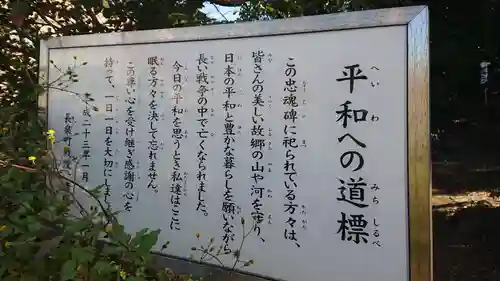 平和への道標
この忠魂碑に祀られている方々は、
皆さんの美しい故郷の山や河を守り、
日本の平和と豊かな暮らしを願いながら
長い戦争の中で亡くなられました。
今日の平和を思うとき私達はここに
眠る方々を決して忘れません。
この尊い心を受け継ぎ感謝の心を
持って、一日一日を大切にします。
平成二十三年一月
長泉町